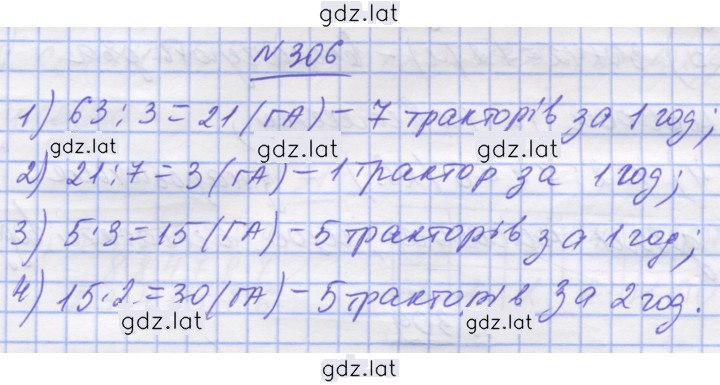 gdz.lat
№306
1) 63 : 3 = 21 (ГА) - 7 тракторів за 1 год;
gdz.lat gdz.lat gdz.lat
2) 21 : 7 = 3 (ГА) - 1 трактор за 1 год;
3) 5 · 3 = 15 (ГА) - 5 тракторів за 1 год;
gdz.lat gdz.lat gdz.lat
4) 15 · 2 = 30 (ГА) - 5 тракторів за 2 год.
gdz.lat gdz.lat gdz.lat
gdz.lat